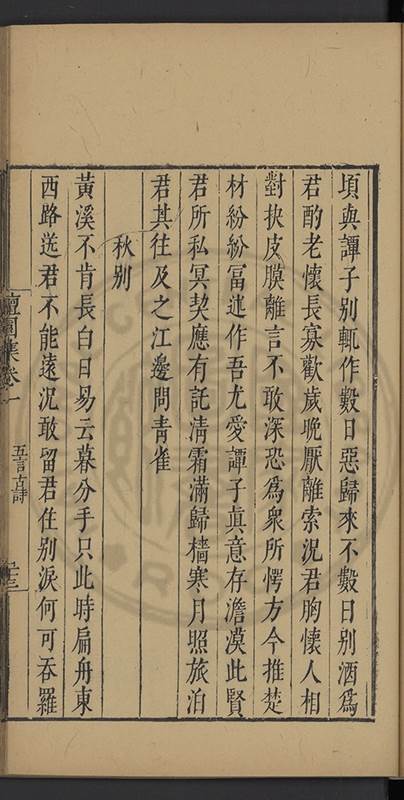 頃與譚子別輒作數日惡歸來不數日別酒爲
君酌老懷長寡歡歲晩厭離索況君胸懷人相
對抉皮膜離言不敢深恐爲衆所愕方今推楚
材紛紛冨述作吾尤愛譚子眞意存澹漠此賢
君所私冥契應有託淸霜滿歸檣寒月照旅泊
君其往及之江邊問靑雀
秋別
黃溪不肯長白日易云暮分手只此時扁舟東
西路送君不能遠況敢留君住別淚何可吞羅
檀園集卷一
五言古詩